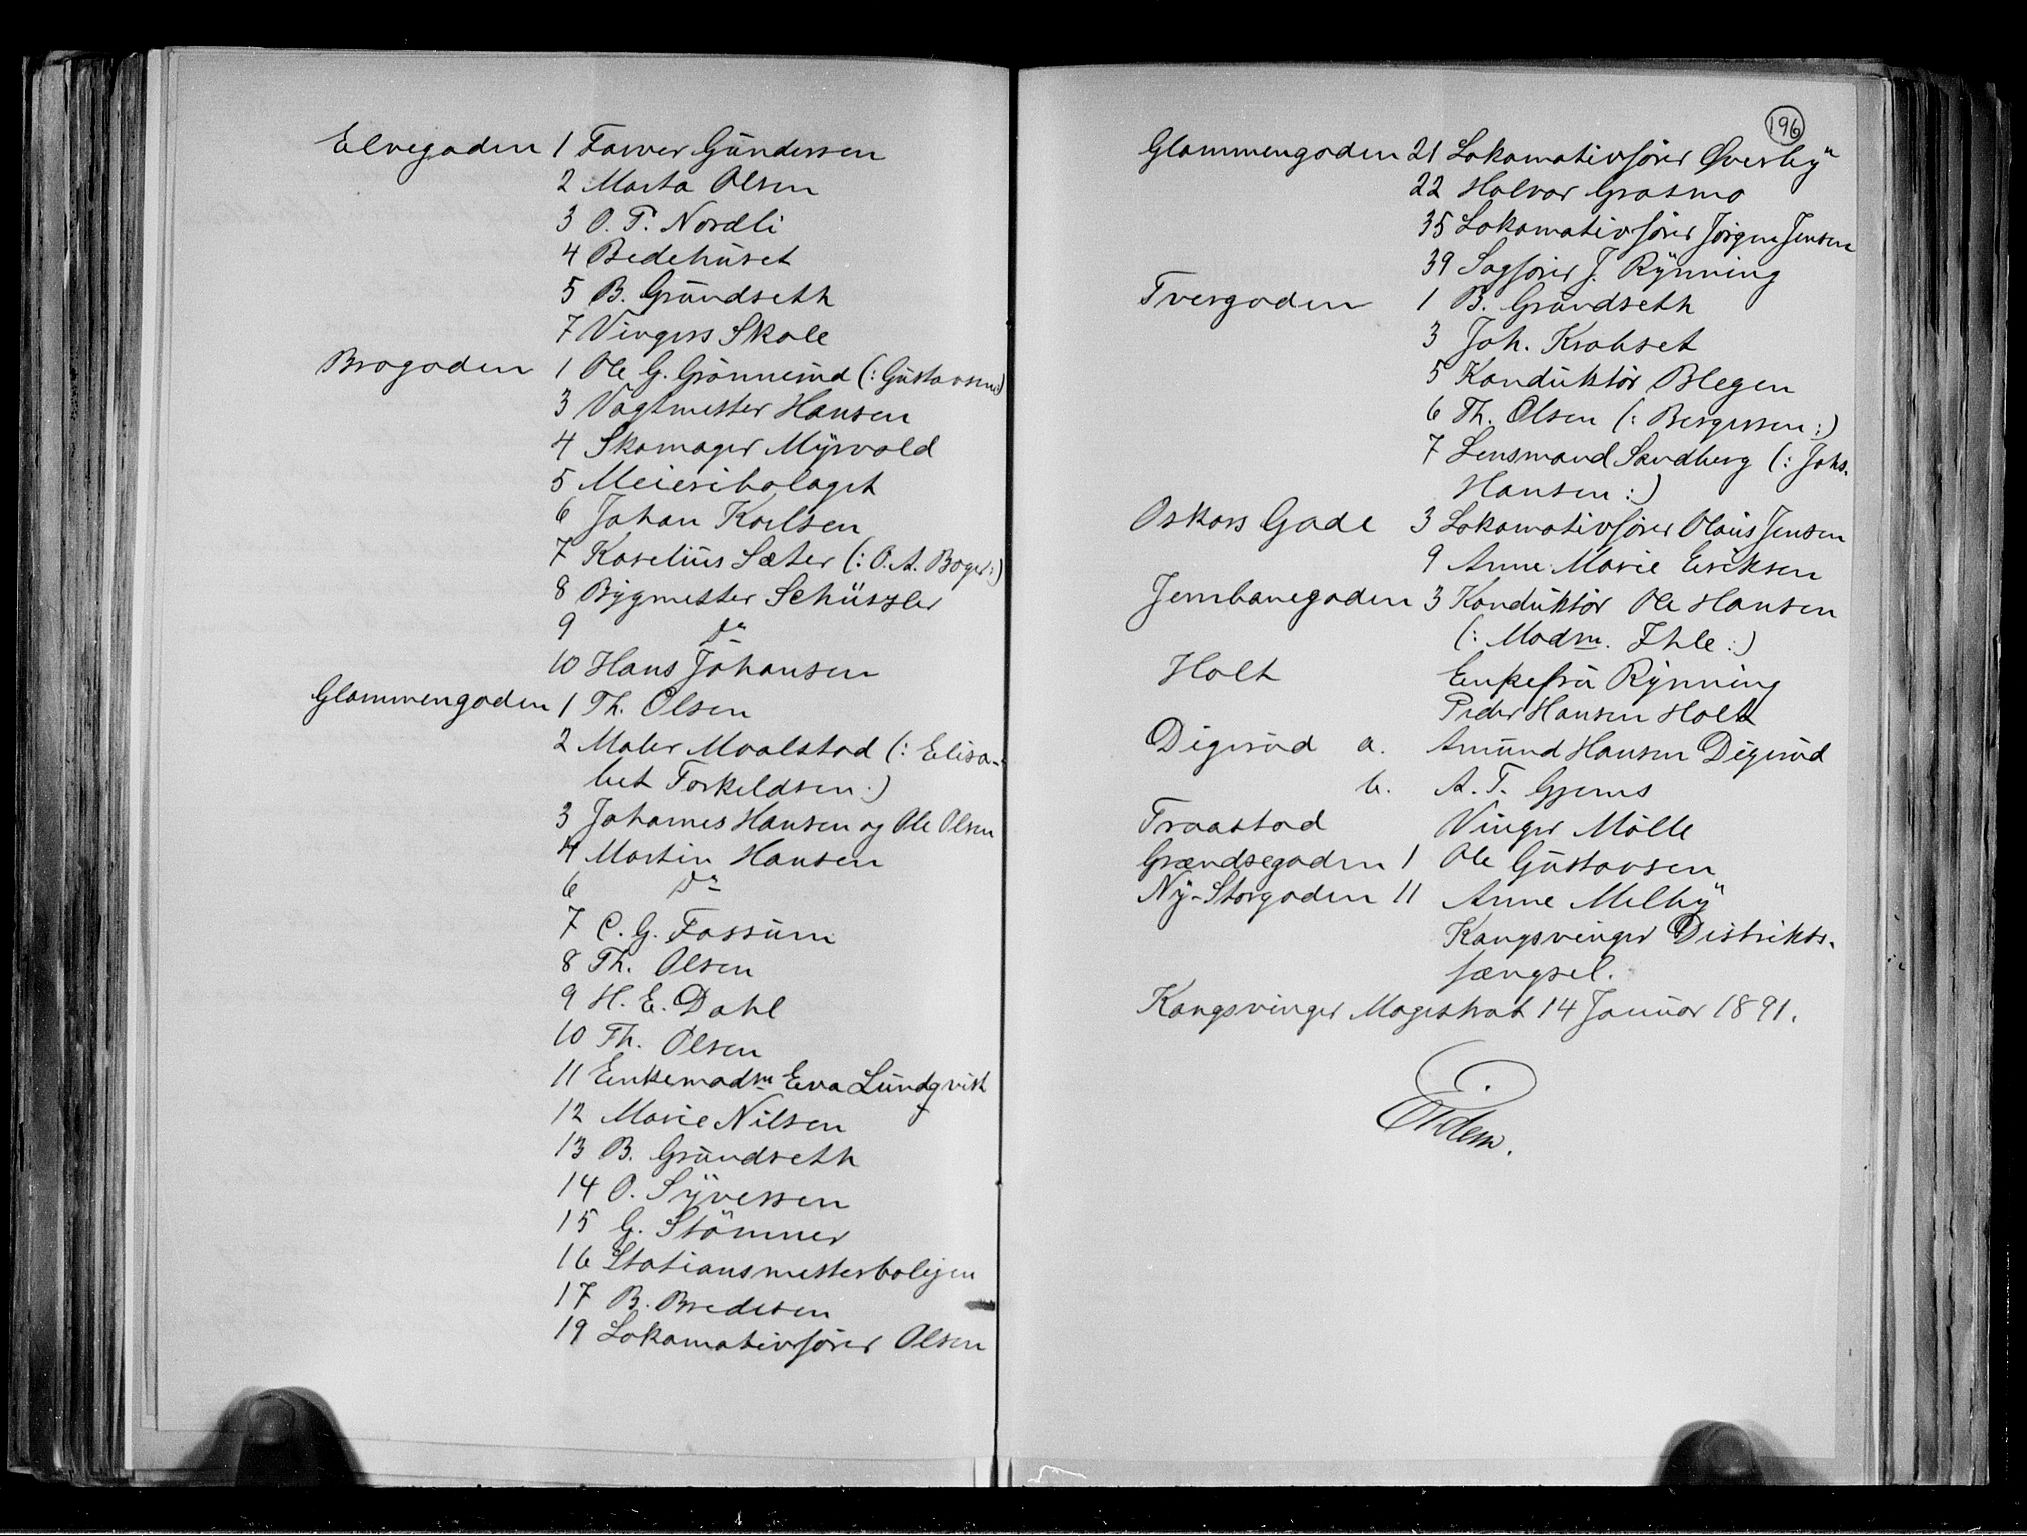 Elvegaden 1 Farver Gundersen
2 Marta Olsen
3 O. P. Nordli
4 Bedehuset
5 B. Grundseth
7 Vingers Skole
Brogaden 1 Ole G. Grønnerud (: Gustavsen:)
3 Vagtmester Hansen
4 Skomager Myrvold
5 Meieribolaget
6 Johan Karlsen
7 Karelius Sæter (: O. A. Boger:)
8 Bygmester Schüssler
9 do
10 Hans Johansen
Glommengaden 1 Th. Olsen
2 Maler Moalstad (: Elisa-
bet Torkeldsen:)
3 Johannes Hansen og Ole Olsen
4 Martin Hansen
6 do
7 C. G. Fossum
8 Th. Olsen
9 H. E. Dahl
10 Th. Olsen
11 Enkemadm Eva Lundqvist
12 Marie Nilsen
13 B. Grundseth
14 O. Syversen
15 G. Stömner
16 Stationsmesterboligen
17 B. Bredesen
19 Lokomotivfører Olsen
196
Glommengaden 21 Lokomotivfører Øverby
22 Halvor Grasmo
35 Lokomotivfører Jørgen Jensen
39 Sagfører J. Rynning
Tvergaden 1 B. Grundseth
3 Joh. Krohset
5 Konduktør Blegen
6 Th. Olsen (: Bergersen:)
7 Lensmand Sandberg (: Johs.
Hansen:)
Oskars Gade 3 Lokomotivfører Olaus Jensen
9 Anne Marie Eriksen
Jernbanegaden 3 Konduktør Ole Hansen
(: Madm. Ihle:)
Holt Enkefru Rynning
Peder Hansen Holt
Digerud a. Amund Hansen Digerud
b. A. T. Gjems
Traastad Vinger Mølle
Grændsegaden 1 Ole Gustavsen
Ny-Storgaden 11 Anne Melby
Kongsvinger Distrikts-
fængsel.
Kongsvinger Magistrat 14 Januar 1891.
Eidem.